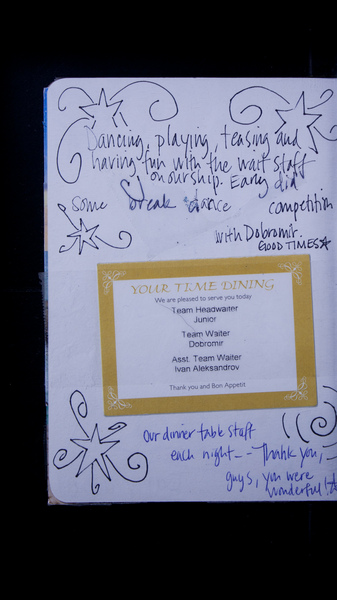 Dancing, playing, teasing and
having fun with the wait staff
on our ship. Earny did
some break dance competition
with Dobromir.
GOOD TIMES
YOUR TIME DINING
We are pleased to serve you today
Team Headwaiter
Junior
Team Waiter
Dobromir
Asst. Team Waiter
Ivan Aleksandrov
Thank you and Bon Appetit.
Our dinner table staff
each night -- Thank you,
guys, you were
wonderful!